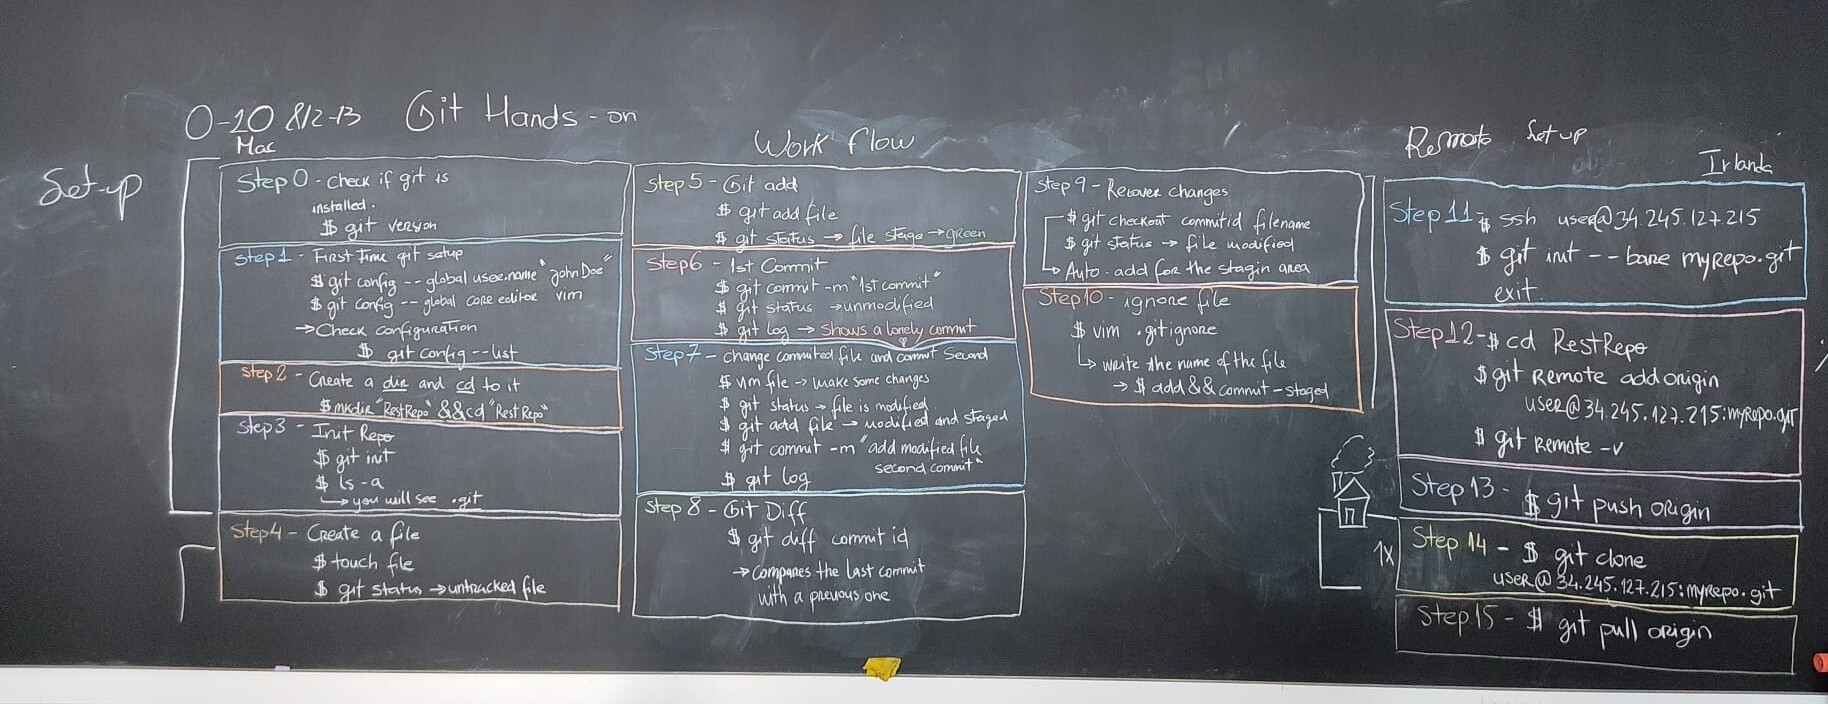 0-10 &12-13 Git Hands-on
Mac
Set-up
Step 0 - Check if git is
installed.
$ git version
Step 1 - First Time git setup
$ git config --global user.name "John Doe"
$ git config -- global core editor vim
→ Check configuration
$ git config --list
Step 2 - Create a dir and cd to it
$ mkdir "RestRepo" && cd "RestRepo"
Step 3 - Init Repo
$ git init
$ ls -a
↳ you will see .git
Step 4 - Create a file
$ touch file
$ git status → untracked file
Work flow
Step 5 - Git add
$ git add file
$ git status → file stage → green
Step 6 - 1st Commit
$ git commit -m "1st commit"
$ git status → unmodified
$ git log → Shows a lonely commit
Step 7 - change commited file and commit Second
$ vim file → make some changes
$ git status → file is modified
$ git add file → modified and staged
$ git commit -m "add modified file
second commit"
$ git log
Step 8 - Git Diff
$ git diff commit id
→ Compares the last commit
with a previous one
Step 9 - Recover changes
$ git checkout commitid filename
$ git status → file modified
↳ Auto-add for the stagin area
Step 10 - ignore file
$ vim .gitignore
↳ write the name of the file
→ $ add && commit - staged
Remote Set up
Irlanda
Step 11 - $ ssh user@34.245.127.215
$ git init -- bare myrepo.git
exit.
Step 12 - $ cd RestRepo
$ git Remote add origin
user@34.245.127.215:myrepo.git
$ git Remote -v
Step 13 - $ git push origin
1x
Step 14 - $ git clone
user@34.245.127.215:myrepo.git
Step 15 - $ git pull origin